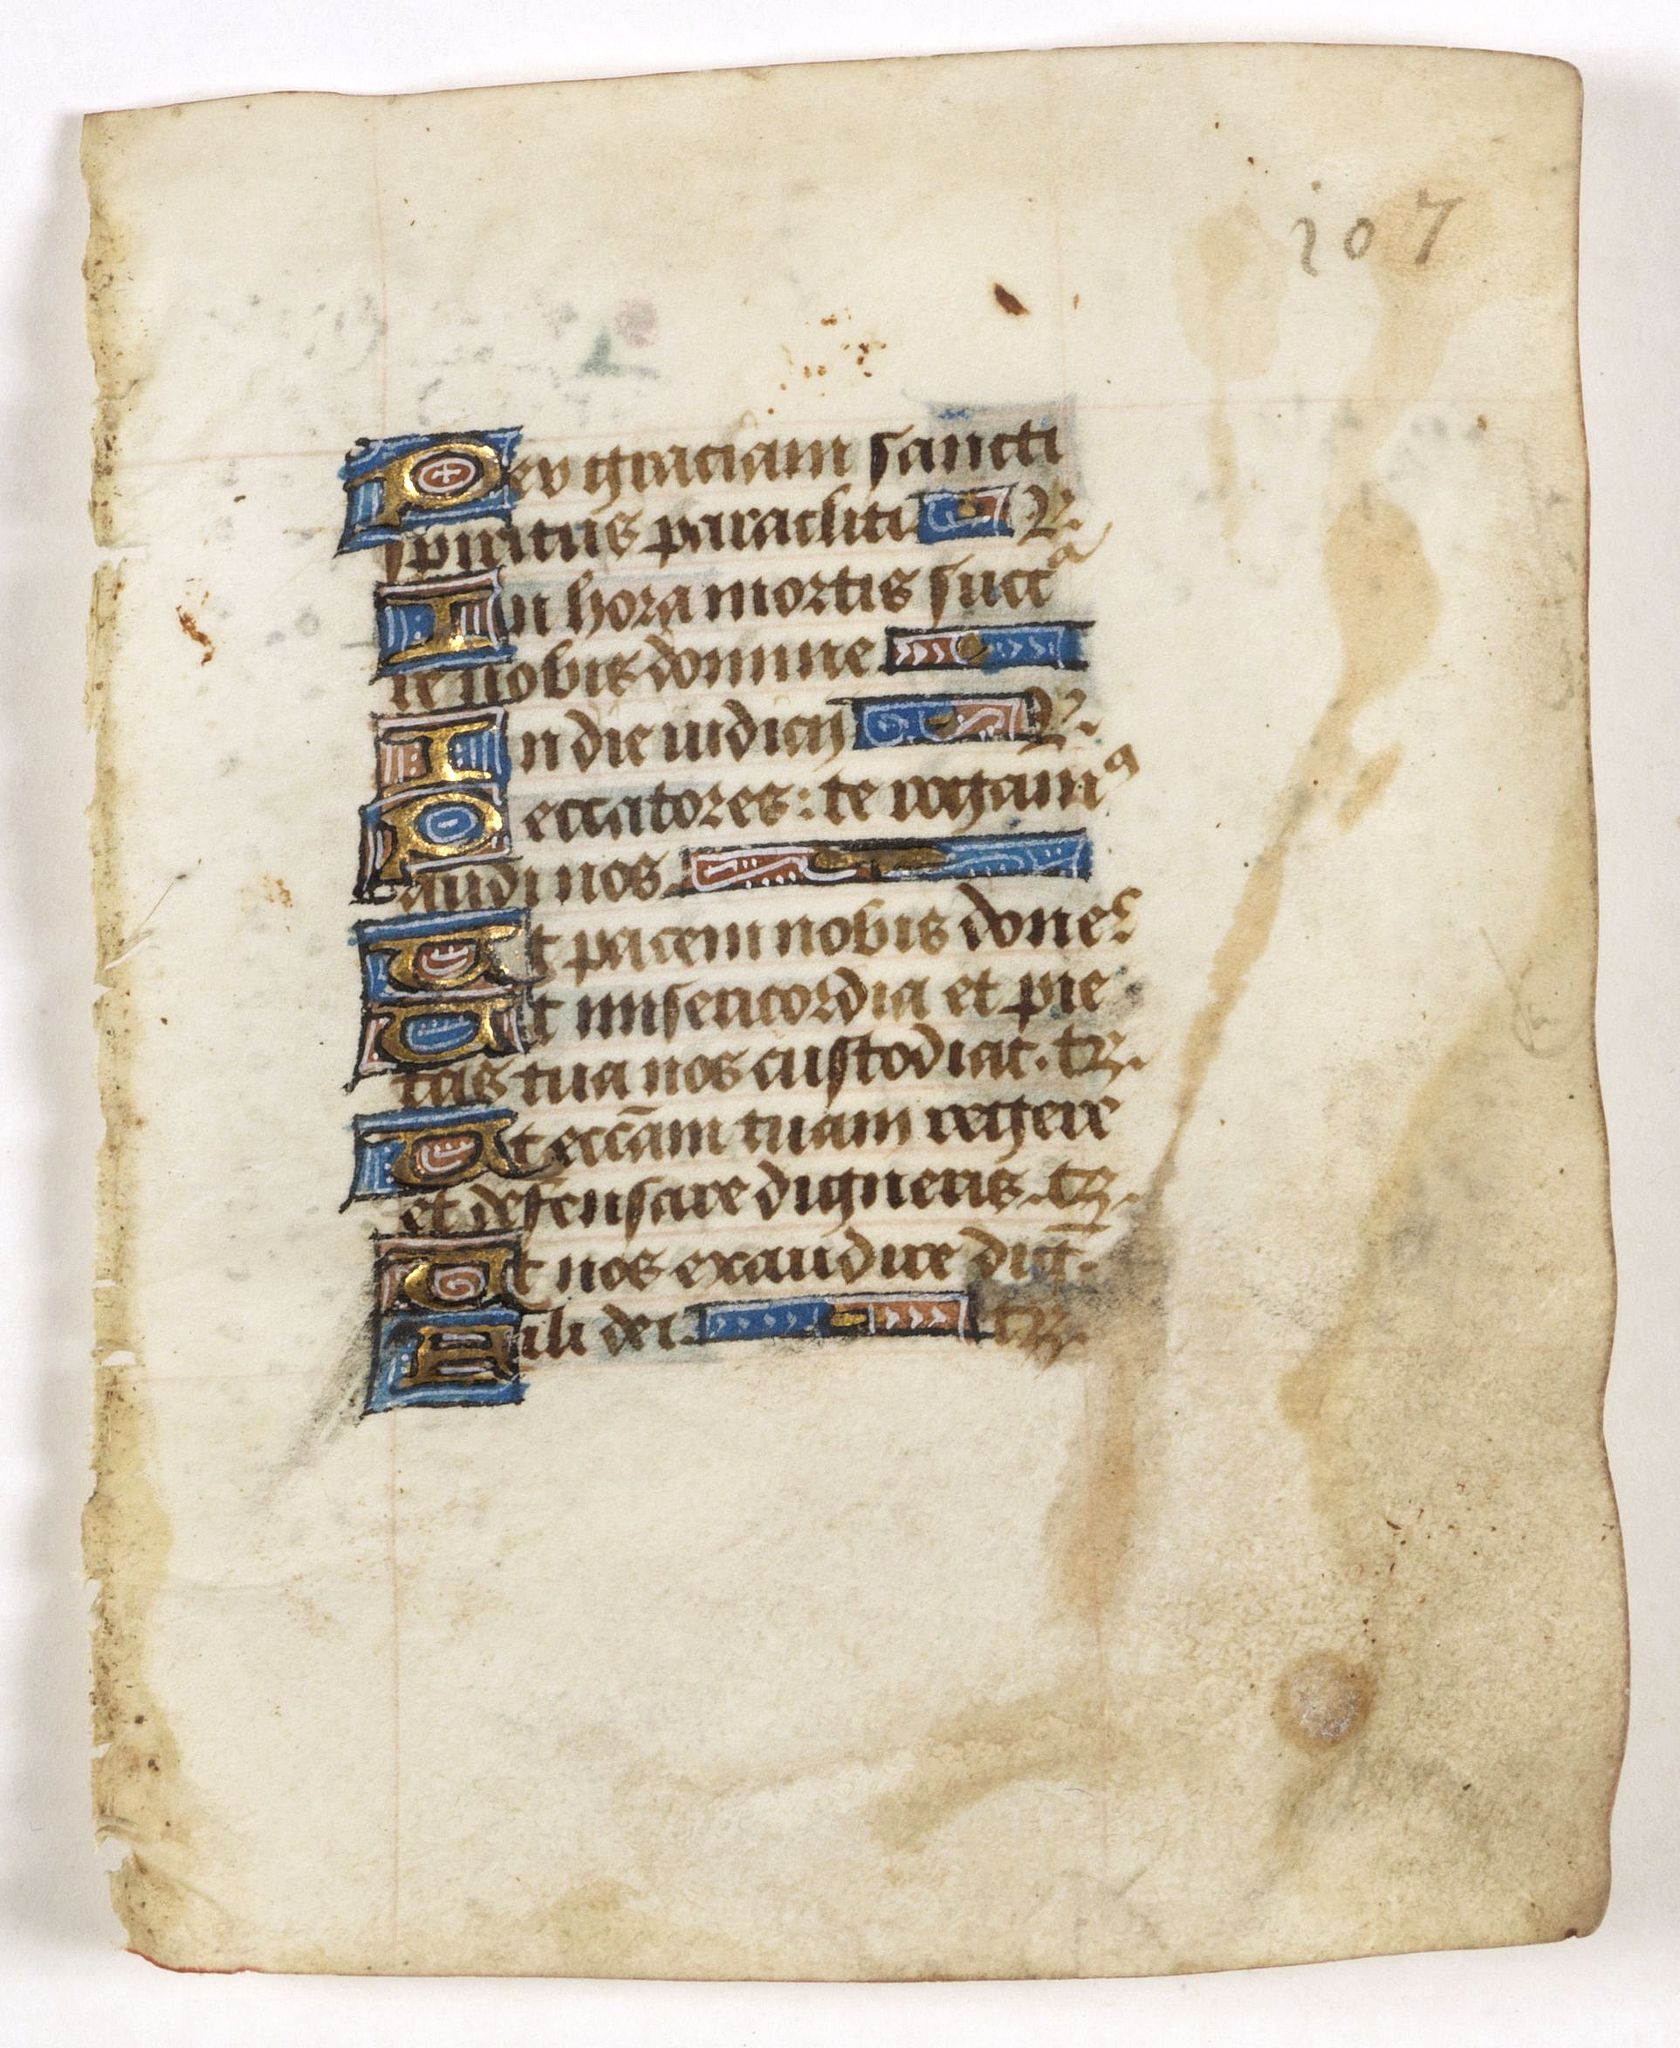 207
Per graciam sancti
spiritus paracliti R.
In hora mortis succᵃ
re nobis domine
In die iudicij R.
Peccatores: te rogamꝰ
audi nos
Ut pacem nobis dones
Ut misericordia et pie
tas tua nos custodiat. t R.
Ut eccãm tuam regere
et defensare digneris. t R.
Ut nos exaudire dict̃.
Fili dei. t R.